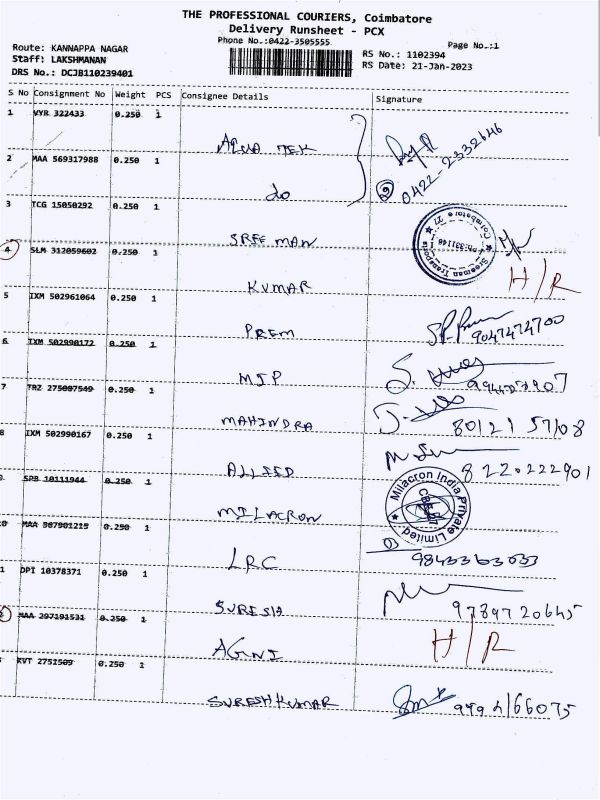 THE PROFESSIONAL COURIERS, Coimbatore
Delivery Runsheet - PCX
Phone No.:0422-3505555
Page No.:1
Route: KANNAPPA NAGAR
Staff: LAKSHMANAN
DRS No.: DCJB110239401
RS No.: 1102394
RS Date: 21-Jan-2023
S No Consignment No Weight PCS Consignee Details Signature
1 VYR 322433 0.250 1
AQUA TEK
0422-2332646
2 MAA 569317988 0.250 1
do
3 TCG 15050292 0.250 1
SREE MAN
Sreeman Transport
Coimbatore
4 SLM 312059602 0.250 1
KUMAR H/R
5 IXM 502961064 0.250 1
PREM 9047474700
6 IXM 502990172 0.250 1
MJP
7 TRZ 275007549 0.250 1
MAHINDRA 80121 57108
8 IXM 502990167 0.250 1
ALLIED 822.222901
SPB 10111944 0.250 1
MILACRON
Milacron India Private Limited
MAA 567901215 0.250 1
LRC 9843363033
DPI 10378371 0.250 1
SURESH 9789720645
MAA 297191531 0.250 1
AGNI H/R
KVT 2751509 0.250 1
SURESH KUMAR 9994166075